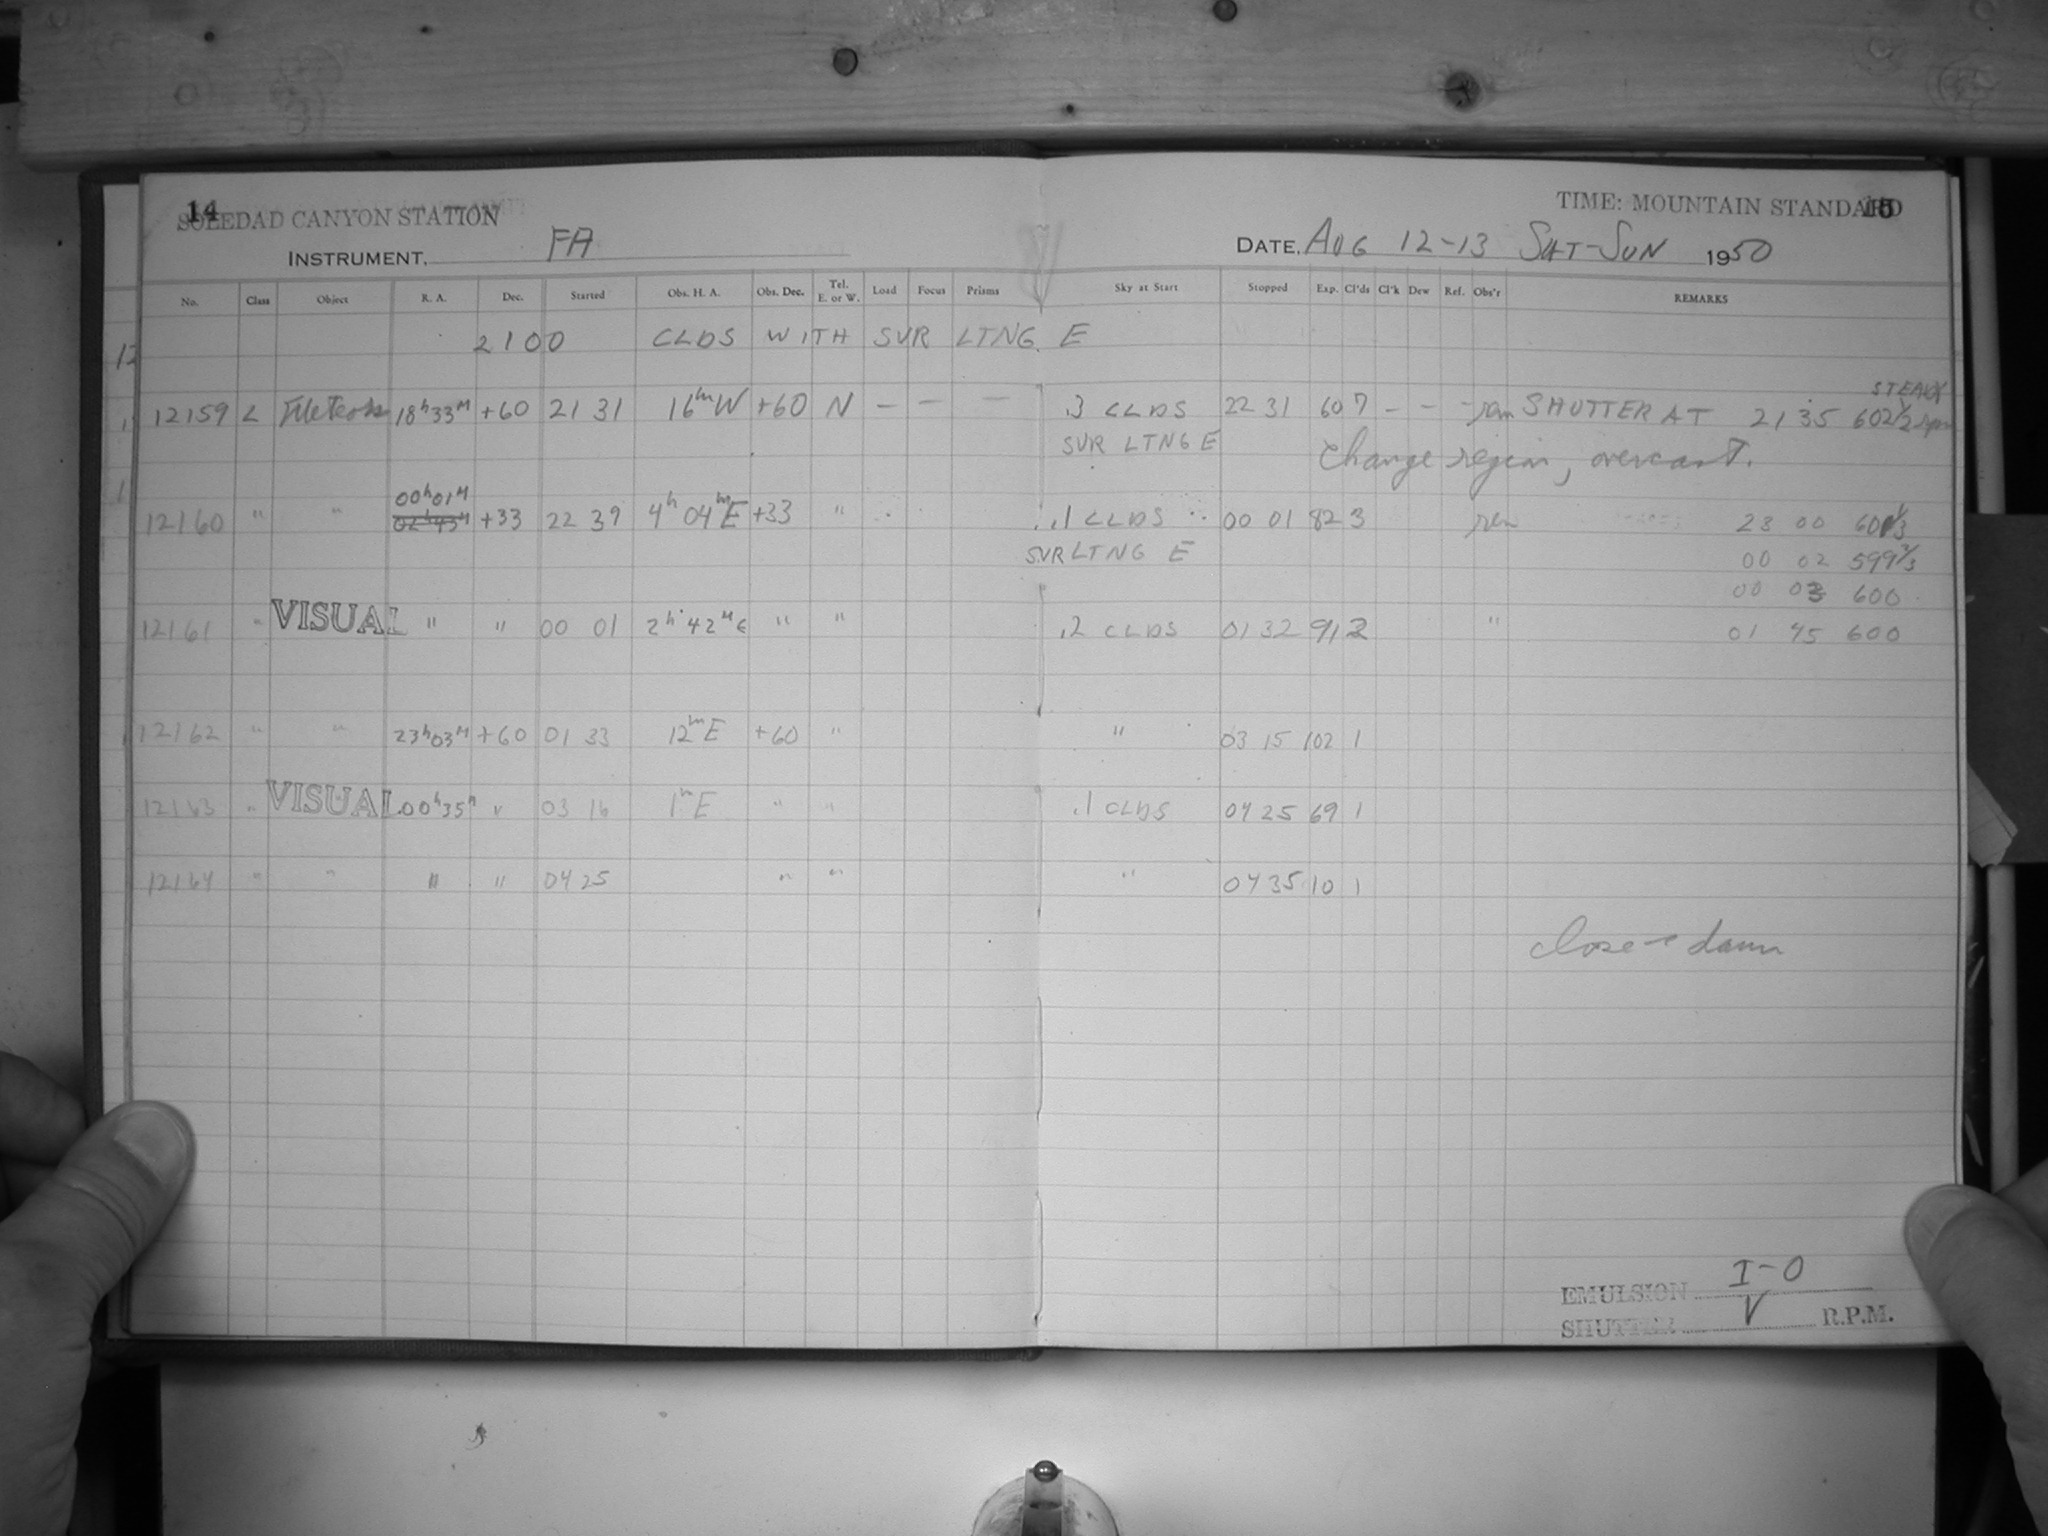 14
SOLEDAD CANYON STATION
TIME: MOUNTAIN STANDARD
15
INSTRUMENT, FA
DATE, AUG 12-13 SAT-SUN 1950
No. Class Object R. A. Dec. Started Obs. H. A. Obs. Dec. Tel. E. or W. Load Focus Prisms Sky at Start Stopped Exp. Cl'ds Cl'k Dew Ref. Obs'r REMARKS
2100 CLDS WITH SVR LTNG E
STEADY
12159 L Meteors 18h33M +60 21 31 16mW +60 N - - - .3 CLDS 22 31 60 7 - - - SHUTTER AT 21 35 602½ rpm
SVR LTNG E
Change region, overcast.
00h01M
12160 " " 02h43M +33 22 39 4h 04mE +33 " .1 CLDS 00 01 82 3 23 00 601⅓
SVR LTNG E 00 02 599⅔
" 00 03 600
12161 " VISUAL " " 00 01 2h 42ME " " .2 CLDS 01 32 91 2 " 01 45 600
12162 " " 23h03M +60 01 33 12mE +60 " " 03 15 102 1
12163 " VISUAL 00h35M " 03 16 1mE " " .1 CLDS 04 25 69 1
12164 " " " " 04 25 " " " 04 35 10 1
close - dawn
EMULSION I-O
SHUTTER V R.P.M.